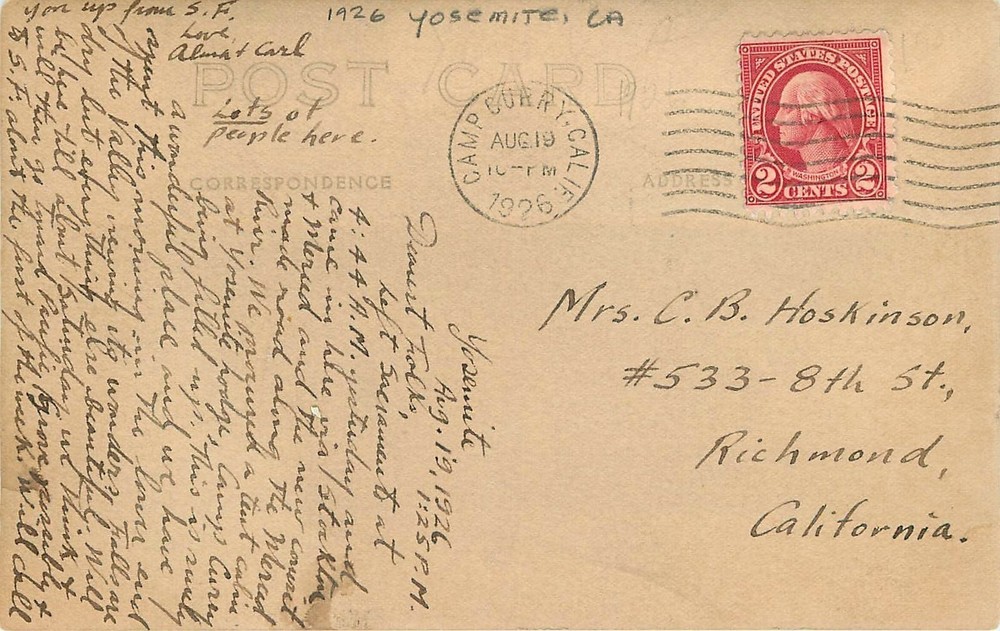 1926 YOSEMITE, CA
POST CARD
CORRESPONDENCE
ADDRESS
CAMP CURRY, CALIF.
AUG 19
10-PM
1926
UNITED STATES POSTAGE
WASHINGTON
2 CENTS 2
Mrs. C. B. Hoskinson,
#533-8th St.,
Richmond,
California.
Yosemite
Aug. 19, 1926
1:25 P.M.
Dearest Folks,
Left Sacramento at
4:44 A.M. yesterday and
came in here via Stockton
& Merced and the new cement
made road along the Merced
River. We managed a tent cabin
at Yosemite Lodge, Camp Curry
being filled up. This is surely
a wonderful place and we have
spent this morning in the lower end
of the Valley seeing its wonders. Falls are
dry but everything else beautiful. Will
be here till about Saturday, we think &
will then go
to S.F. about the first of the week. Will call
you up from S.F.
Love,
Alma & Carl
Lots of
people here.